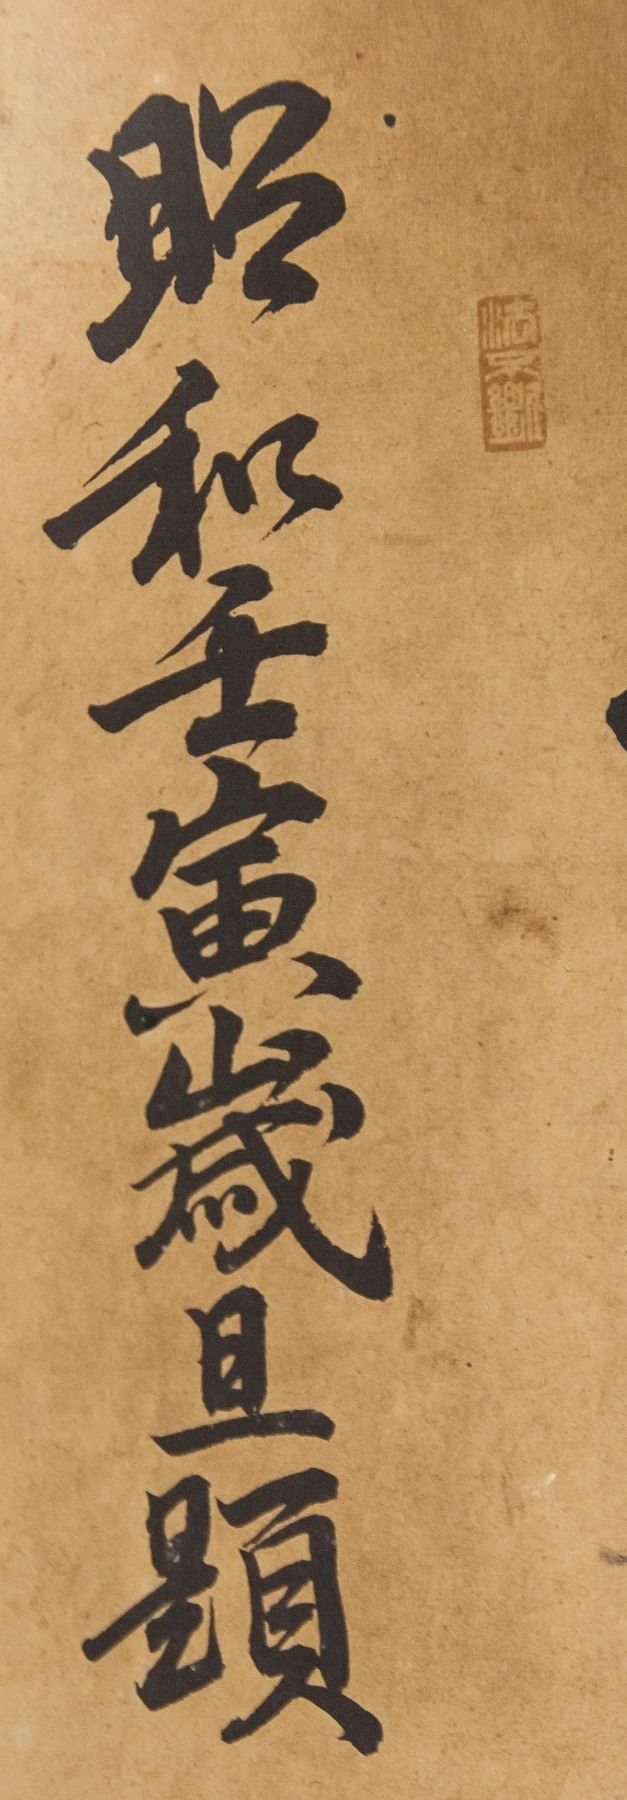 昭和壬寅歳旦題